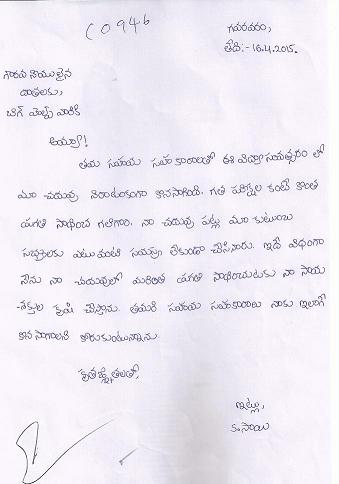 CO946
గవరవరం,
తేది:- 16.4.2015.
గౌరవ నీయులైన
దాతలకు,
బిగ్ హెల్ప్ వారికి
అయ్యా!
తమ సహాయ సహకారాలతో ఈ విద్యాసంవత్సరం లో
మా చదువు నిరాటంకంగా కొనసాగింది. గత పరీక్షల కంటే కొంత
ప్రగతి సాధించ గలిగాను. నా చదువు పట్ల మా కుటుంబ
సభ్యులకు ఎటువంటి సమస్యా లేకుండా చేసినారు. ఇదే విధంగా
నేను నా చదువులో మరింత ప్రగతి సాధించుటకు నా సాయ
-శక్తుల కృషి చేస్తాను. తమరి సహాయ సహకారాలు నాకు ఇలాగే
కొన సాగాలని కోరుకుంటున్నాను.
కృతజ్ఞతలతో,
ఇట్లు,
క.సాయి